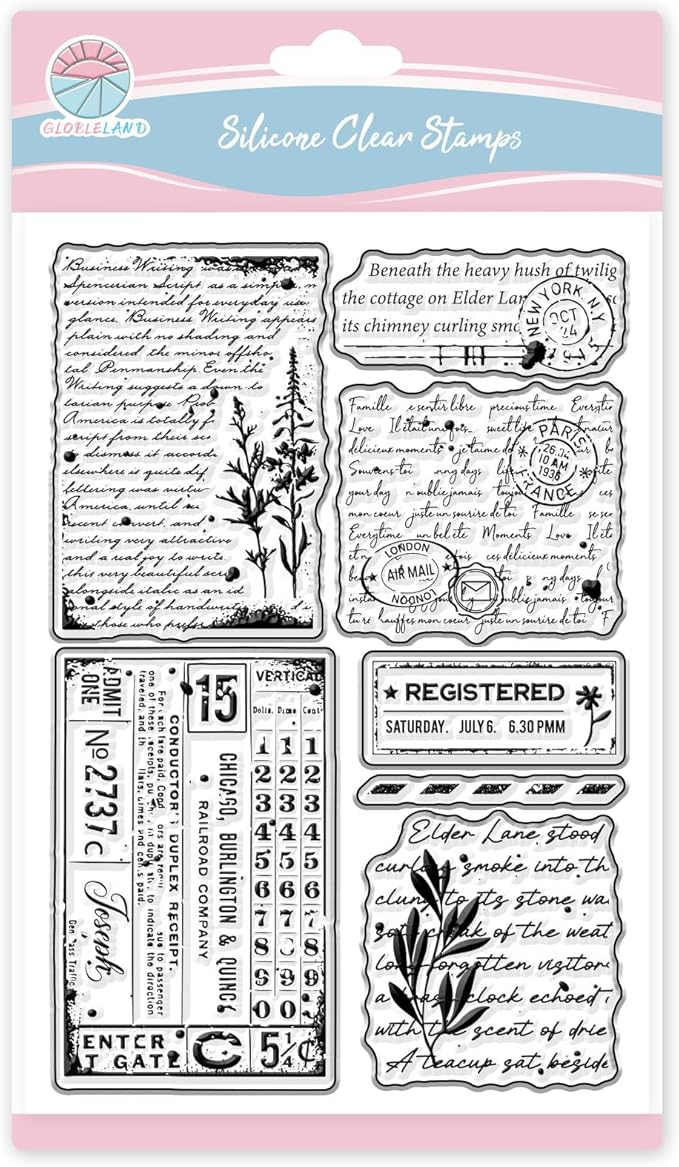 GLOBLELAND
Silicone Clear Stamps
Business Writing was
Spencerian Script as a simple, m
version intended for everyday use
glance. Business Writing appears
plain with no shading and
considered the minor offsho
tal Penmanship. Even the
Writing suggests a down to
tarian purpose.
America is totally f
script from their sec
dismiss it accord
elsewhere is quite dif
lettering was virtu
America, until
scent convert, and
writing very attractive
and a real joy to write.
this very beautiful scr
alongside italic as an id
onal style of handwrit
those who pref
Beneath the heavy hush of twilig
the cottage on Elder Lan
its chimney curling smo
NEW YORK, N.Y.
OCT
24
1915
Famille e sentir libre precious time Everytim
Love Il était une fois
délicieux moments je t'aime
Souviens toi ny days life
your day n oublie jamais toujou ces
mon coeur juste un sourire de toi Famille se ser
Everytime un bel été Moments Love Il éte
et n e fois ces délicieux moments
be ny days d'
insta oublie jamais toujour
ture hauffes mon coeur juste un sourire de toi F
PARIS
26.04
10 AM
1936
FRANCE
LONDON
AIR MAIL
LONDON
ADMIT
ONE
No 2737 C
Joseph
Gen. Pass. Traffic
For each fare paid, Cond
one of these receipts, pu
traveled, and th
CONDUCTOR'S DUPLEX RECEIPT.
ors are
in dupl
llars, dimes and cents paid.
sue to passenger
te, to indicate the direction
15
CHICAGO, BURLINGTON & QUINC
RAILROAD COMPANY
VERTICAL
Dolls. Dime Cent
1 1 1
2 2 2
3 3 3
4 4 4
5 5 5
6 6 6
7 7 7
8 8 8
9 9 9
0 0 0
ENTER
T GATE
C
5¼¢
REGISTERED
SATURDAY. JULY 6. 6.30 PMM
Elder Lane stood
curling smoke into th
clung to its stone wa
soft creak of the weat
long forgotten visitor
a brass clock echoed
with the scent of drie
A teacup sat beside